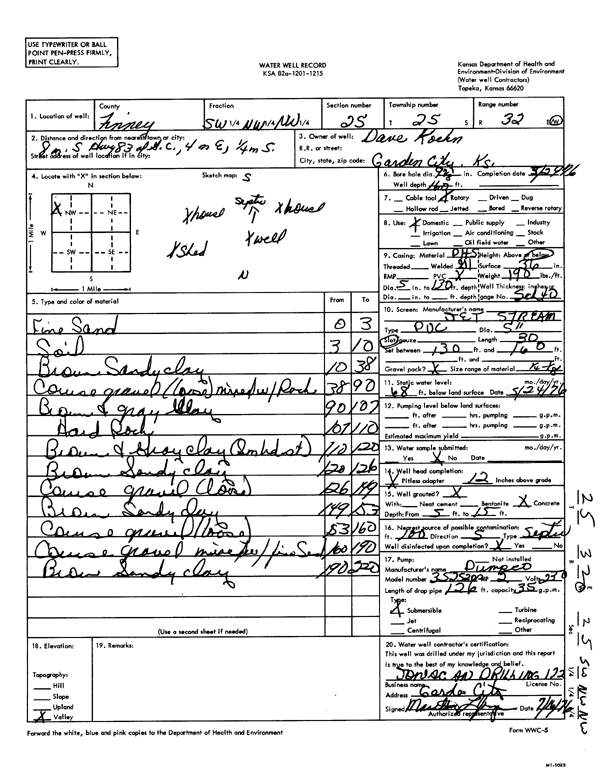 USE TYPEWRITER OR BALL
POINT PEN-PRESS FIRMLY,
PRINT CLEARLY.
WATER WELL RECORD
KSA 82a-1201-1215
Kansas Department of Health and
Environment-Division of Environment
(Water well Contractors)
Topeka, Kansas 66620
1. Location of well: County Finney Fraction SW 1/4 NW 1/4 NW 1/4 Section number 25 Township number T 25 S Range number R 32 E/W
2. Distance and direction from nearest town or city: 8 m. S Hwy 83 of G.C., 4 m E, 1/4 m S.
Street address of well location if in city:
3. Owner of well: Dave Koehn
R.R. or street:
City, state, zip code: Garden City, Ks.
4. Locate with "X" in section below: Sketch map: S
N
W E
NW NE
SW SE
S
1 Mile
1 Mile
X house Septic X house
X Shed X well
N
6. Bore hole dia. in. Completion date
Well depth ft.
7. Cable tool X Rotary Driven Dug
Hollow rod Jetted Bored Reverse rotary
8. Use: X Domestic Public supply Industry
Irrigation Air conditioning Stock
Lawn Oil field water Other
9. Casing: Material Height: Above or below
Threaded Welded Surface 36 in.
RMP PVC X Weight 190 lbs./ft.
Dia. 5 in. to 130 ft. depth Wall Thickness: inches or
Dia. in. to ft. depth gage No. Sch 40
10. Screen: Manufacturer's name JET STREAM
Type PVC Dia. 5"
Slot/gauze Length 30
Set between 130 ft. and 160 ft.
ft. and ft.
Gravel pack? X Size range of material
5. Type and color of material From To
Fine Sand 0 3
Soil 3 10
Brown Sandy clay 10 38
Course gravel (loose) mixed w/ Rock 38 90
Brown & gray Clay 90 107
Hard Rock 107 110
Brown & Gray clay 110 120
Brown Sandy clay 120 126
Course gravel (loose) 126 149
Brown Sandy clay 149 153
Course gravel (loose) 153 160
Course gravel mixed w/ fine Sand 160 190
Brown Sandy clay 190 220
(Use a second sheet if needed)
11. Static water level: mo./day/yr.
68 ft. below land surface Date 5/24/76
12. Pumping level below land surfaces:
ft. after hrs. pumping g.p.m.
ft. after hrs. pumping g.p.m.
Estimated maximum yield g.p.m.
13. Water sample submitted: mo./day/yr.
Yes X No Date
14. Well head completion:
X Pitless adapter 12 Inches above grade
15. Well grouted? X
With: Neat cement Bentonite X Concrete
Depth: From 5 ft. to 15 ft.
16. Nearest source of possible contamination:
ft. 100 Direction S Type Septic
Well disinfected upon completion? X Yes No
17. Pump: Not installed
Manufacturer's name Dumpco
Model number HP 2 Volts 230
Length of drop pipe 126 ft. capacity 35 g.p.m.
Type:
X Submersible Turbine
Jet Reciprocating
Centrifugal Other
18. Elevation:
Topography:
Hill
Slope
Upland
X Valley
19. Remarks:
20. Water well contractor's certification:
This well was drilled under my jurisdiction and this report
is true to the best of my knowledge and belief.
DRILLING 122
Business name License No.
Address Garden City
Signed Date
Authorized representative
Forward the white, blue and pink copies to the Department of Health and Environment
Form WWC-5
T 25
R 32 E W
Sec 25
1/4 1/4 1/4 SW NW NW